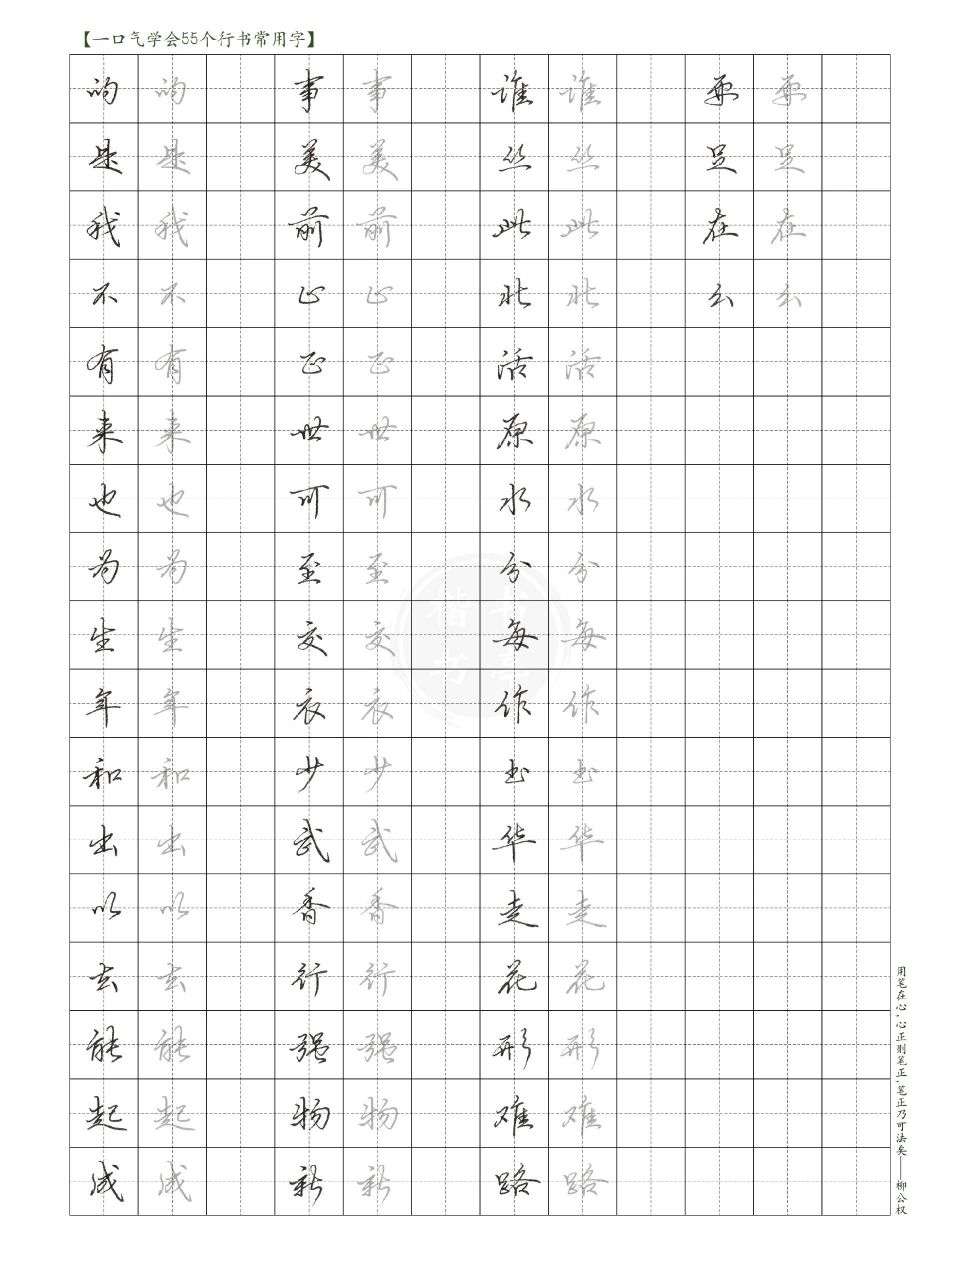 【一口气学会55个行书常用字】
的 的 事 事 谁 谁 要 要
是 是 美 美 丝 丝 足 足
我 我 前 前 此 此 在 在
不 不 止 止 北 北 公 公
有 有 正 正 活 活
来 来 世 世 原 原
也 也 可 可 水 水
为 为 至 至 分 分
生 生 交 交 每 每
年 年 衣 衣 作 作
和 和 少 少
出 出 武 武 华 华
以 以 香 香 走 走
去 去 行 行 花 花
能 能 强 强 形 形
起 起 物 物 难 难
成 成 新 新 路 路
用笔在心,心正则笔正,笔正乃可法矣——柳公权